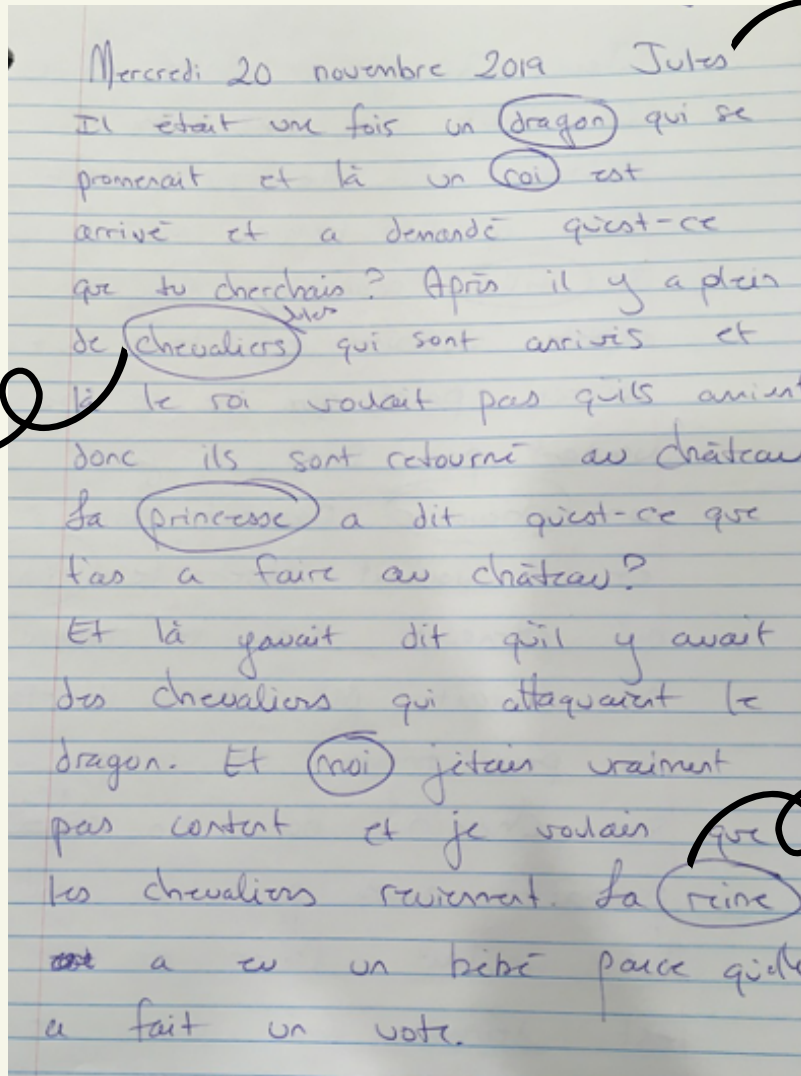 Mercredi 20 novembre 2019 Jules
Il était une fois un dragon qui se
promenait et là un roi est
arrivé et a demandé qu'est-ce
que tu cherchais? Après il y a plein
de chevaliers qui sont arrivés et
là le roi voulait pas qu'ils
donc ils sont retourné au château
La princesse a dit qu'est-ce que
t'as a faire au château?
Et là yavait dit qu'il y avait
des chevaliers qui attaquaient le
dragon. Et moi j'étais vraiment
pas content et je voulais que
les chevaliers reviennent. La reine
a eu un bébé parce qu'elle
a fait un vote.